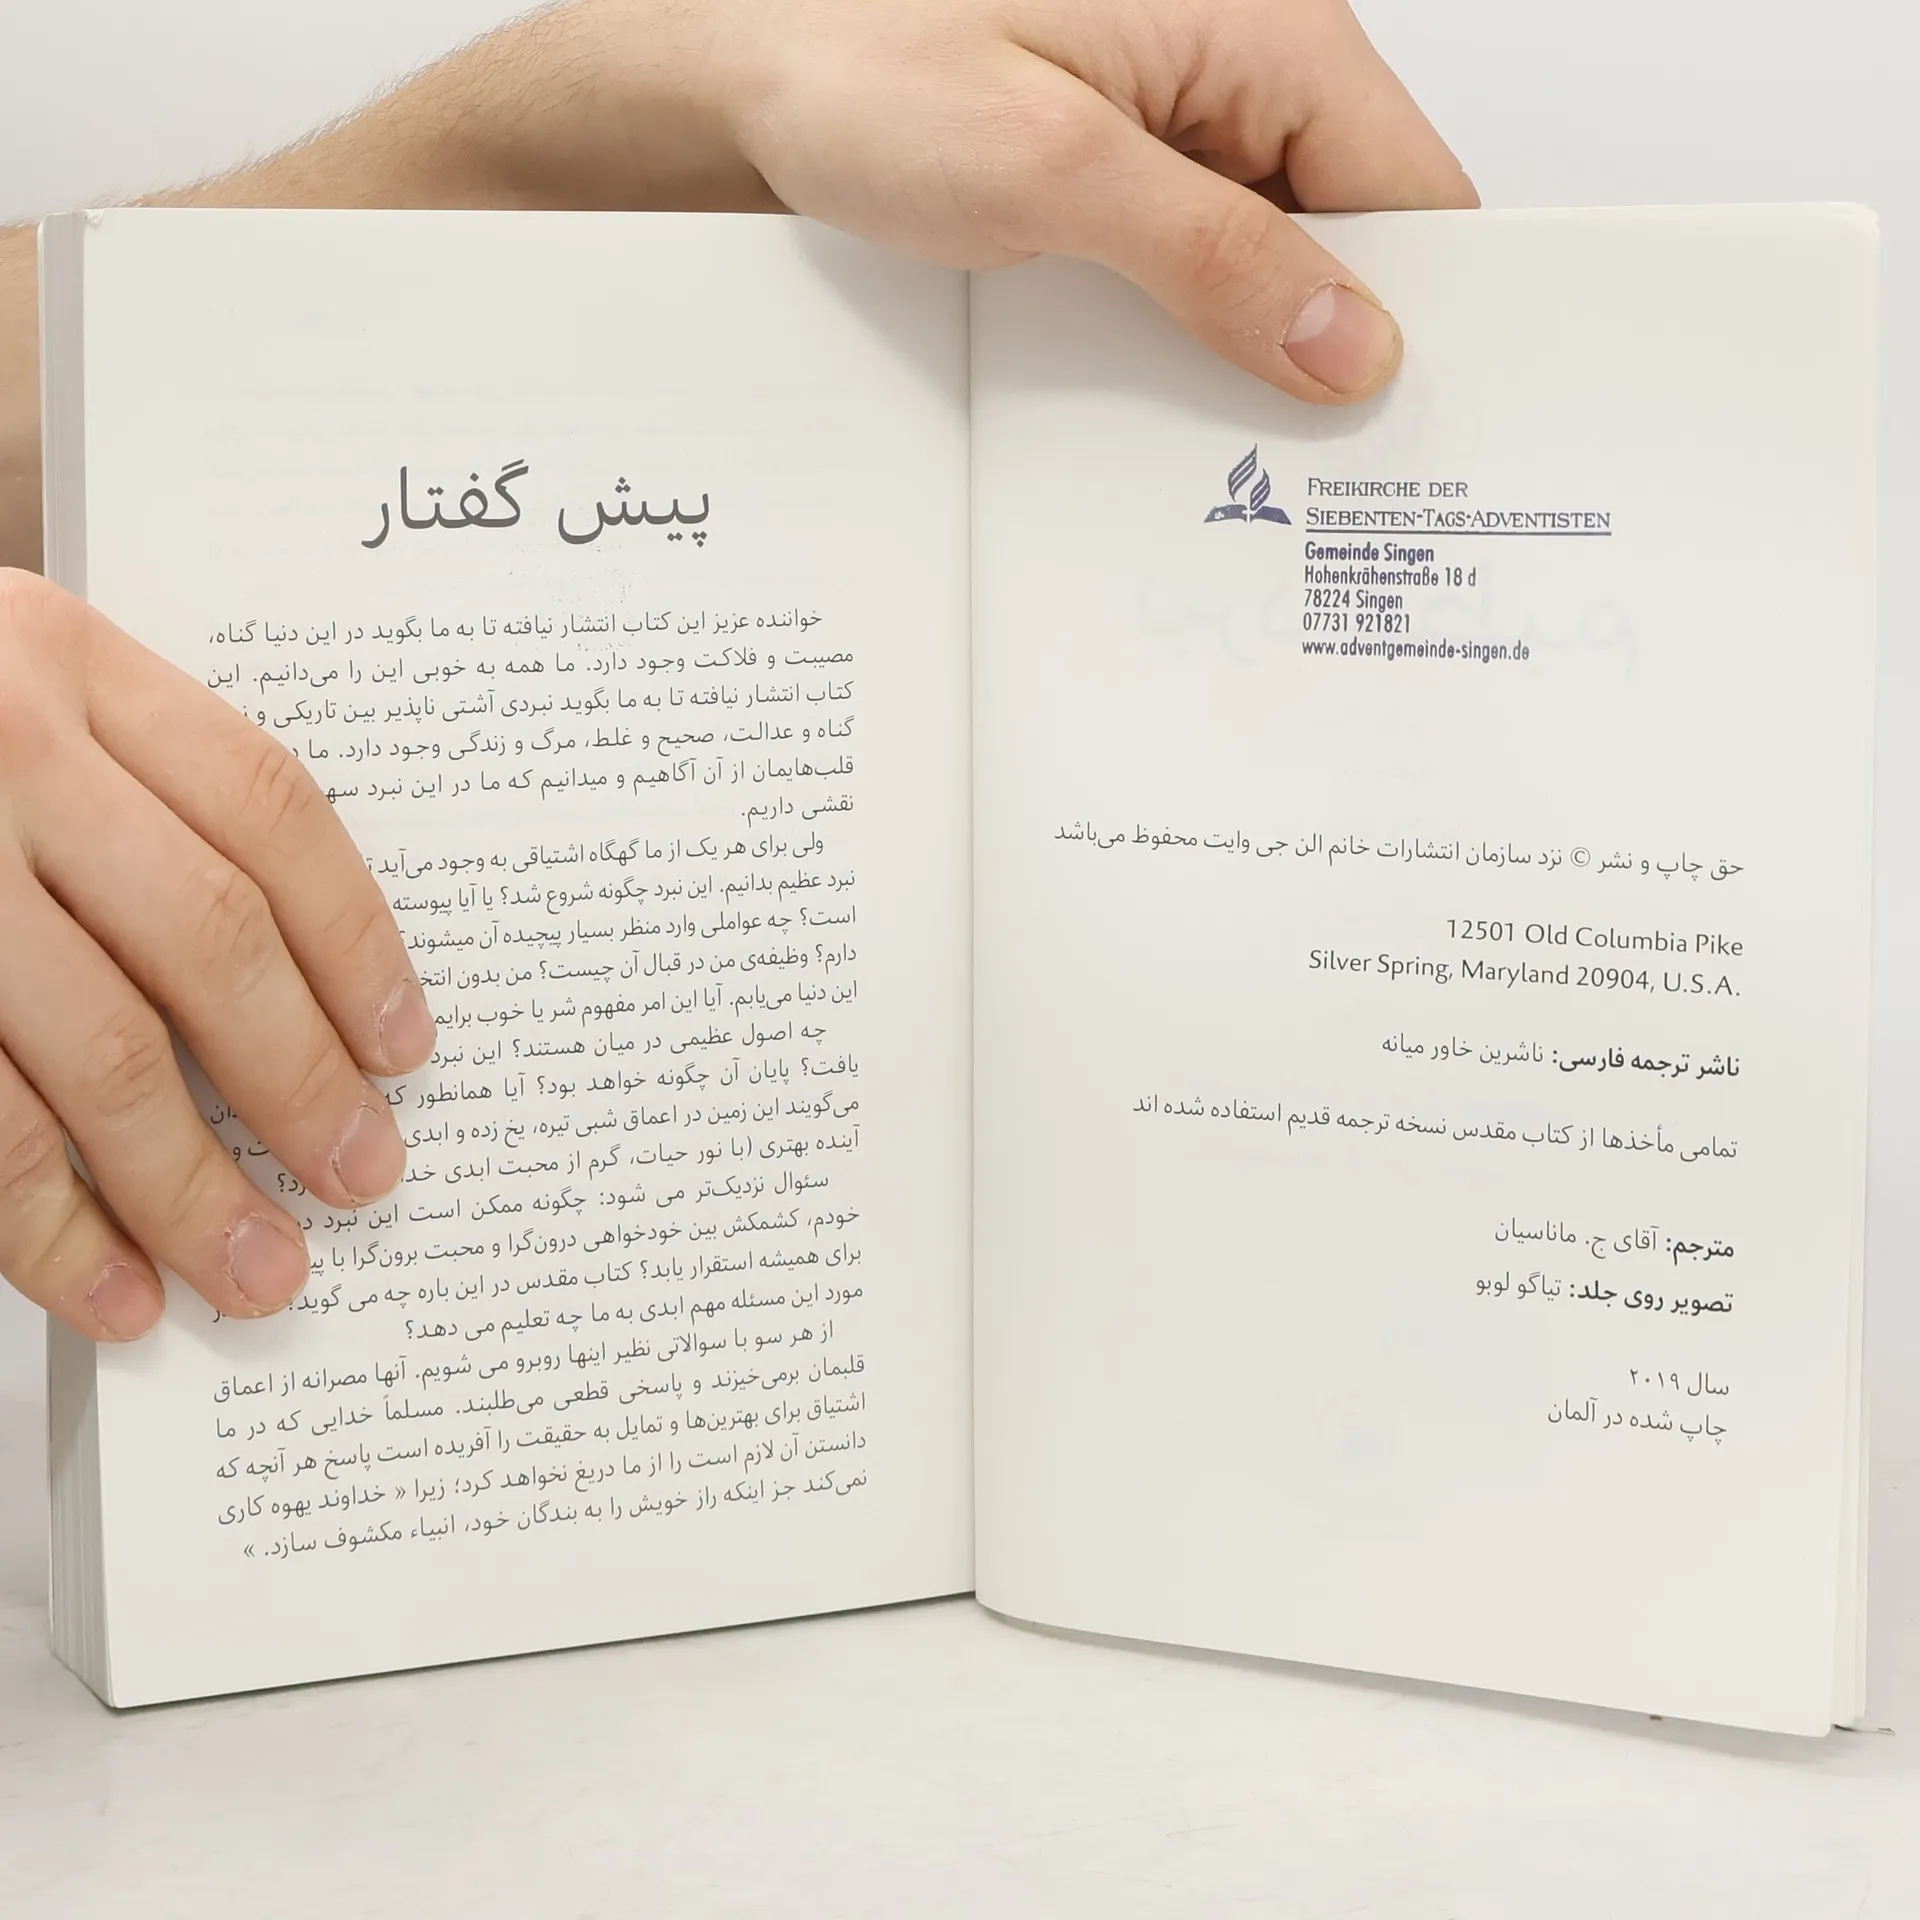 FREIKIRCHE DER
SIEBENTEN-TAGS-ADVENTISTEN
Gemeinde Singen
Hohenkrähenstraße 18 d
78224 Singen
07731 921821
www.adventgemeinde-singen.de
حق چاپ و نشر © نزد سازمان انتشارات خانم الن جی وایت محفوظ می‌باشد
12501 Old Columbia Pike
Silver Spring, Maryland 20904, U.S.A.
ناشر ترجمه فارسی: ناشرین خاور میانه
تمامی مأخذها از کتاب مقدس نسخه ترجمه قدیم استفاده شده اند
مترجم: آقای ج. ماناسیان
تصویر روی جلد: تیاگو لوبو
سال ۲۰۱۹
چاپ شده در آلمان
پیش گفتار
خواننده عزیز این کتاب انتشار نیافته تا به ما بگوید در این دنیا گناه،
مصیبت و فلاکت وجود دارد. ما همه به خوبی این را می‌دانیم. این
کتاب انتشار نیافته تا به ما بگوید نبردی آشتی ناپذیر بین تاریکی و
گناه و عدالت، صحیح و غلط، مرگ و زندگی وجود دارد. ما
قلب‌هایمان از آن آگاهیم و میدانیم که ما در این نبرد
نقشی داریم.
ولی برای هر یک از ما گهگاه اشتیاقی به وجود می‌آید
نبرد عظیم بدانیم. این نبرد چگونه شروع شد؟ یا آیا پیوسته
است؟ چه عواملی وارد منظر بسیار پیچیده آن میشوند؟
دارم؟ وظیفه‌ی من در قبال آن چیست؟ من بدون
این دنیا می‌یابم. آیا این امر مفهوم شر یا خوب برایم
چه اصول عظیمی در میان هستند؟ این نبرد
یافت؟ پایان آن چگونه خواهد بود؟ آیا همانطور که
می‌گویند این زمین در اعماق شبی تیره، یخ زده و ابدی
آینده بهتری (با نور حیات، گرم از محبت ابدی
سئوال نزدیک‌تر می شود: چگونه ممکن است این نبرد
خودم، کشمکش بین خودخواهی درون‌گرا و محبت برون‌گرا با
برای همیشه استقرار یابد؟ کتاب مقدس در این باره چه می گوید؟
مورد این مسئله مهم ابدی به ما چه تعلیم می دهد؟
از هر سو با سوالاتی نظیر اینها روبرو می شویم. آنها مصرانه از اعماق
قلبمان برمی‌خیزند و پاسخی قطعی می‌طلبند. مسلماً خدایی که در ما
اشتیاق برای بهترین‌ها و تمایل به حقیقت را آفریده است پاسخ هر آنچه که
دانستن آن لازم است را از ما دریغ نخواهد کرد؛ زیرا « خداوند یهوه کاری
نمی‌کند جز اینکه راز خویش را به بندگان خود، انبیاء مکشوف سازد. »